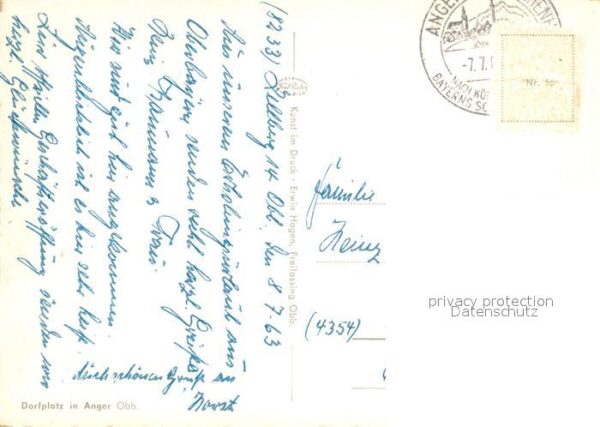 (8233) Zellberg 14 Obb., den 8.7.63
Aus unserem Erholungsurlaub aus
Oberbayern senden recht herzl. Grüße
Heinz Baumann & Frau
Wir sind gut hier angekommen.
Augenblicklich ist es hier sehr heiß.
Zur Geschäftseröffnung senden wir
herzl. Glückwünsche.
Auch schönen Gruß an
Horst
Dorfplatz in Anger Obb.
Kunst im Druck · Erwin Hagen, Freilassing Obb.
ANGER
-7.7.
NACH KÖ
BAYERNS SC
Nr. 16
Familie
Heinz
(4354)
privacy protection
Datenschutz